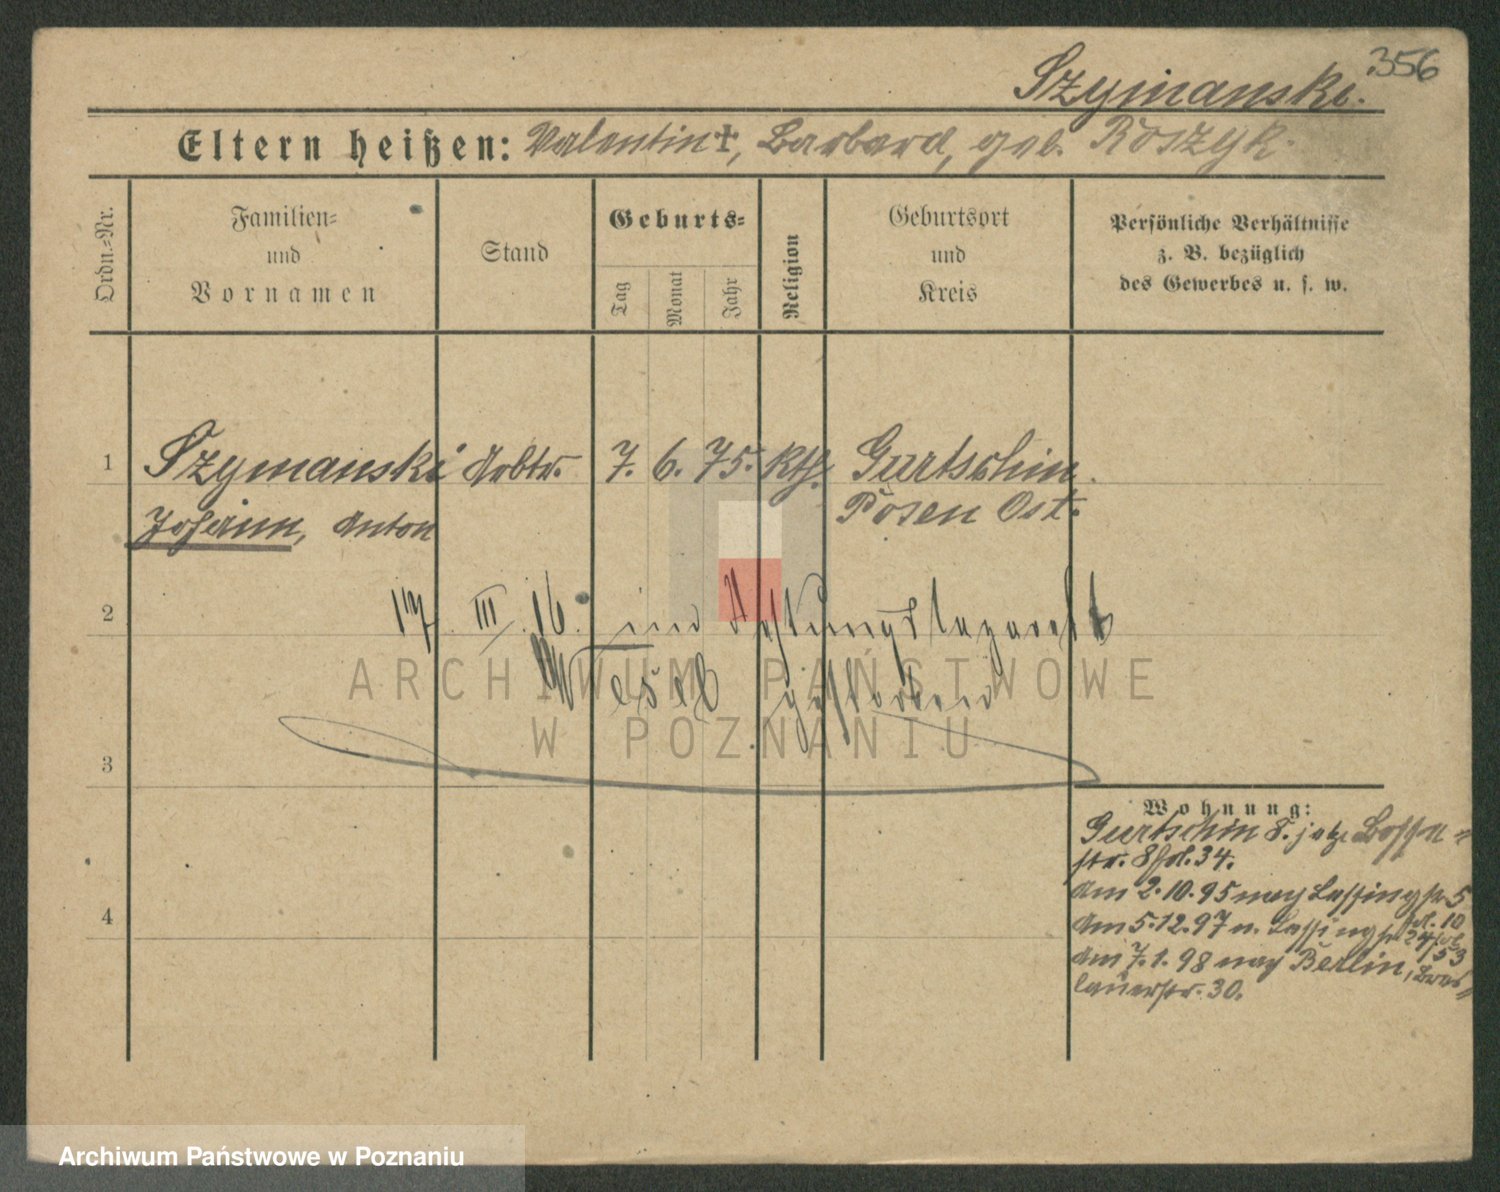 356
Szymanski.
Eltern heißen: Valentin †, Barbara, geb. Roszyk.
Ordn.=Nr.
Familien=
und
Vornamen
Stand
Geburts=
Tag
Monat
Jahr
Religion
Geburtsort
und
Kreis
Persönliche Verhältnisse
z. B. bezüglich
des Gewerbes u. s. w.
1 Szymanski Arbtr. 7. 6. 75. Kth. Gurtschin
Johann, Anton Posen Ost.
2 17. III. 16. im Festungslazarett
Wesel gestorben
3
4
Wohnung:
Gurtschin 8. jetzt
str. 8 34.
Am 2.10.95 nach Lessingstr 5
Am 5.12.97 n. Lessingstr 24
Am 7.1.98 nach Berlin, Bres=
lauerstr. 30.
ARCHIWUM PAŃSTWOWE
W POZNANIU
Archiwum Państwowe w Poznaniu